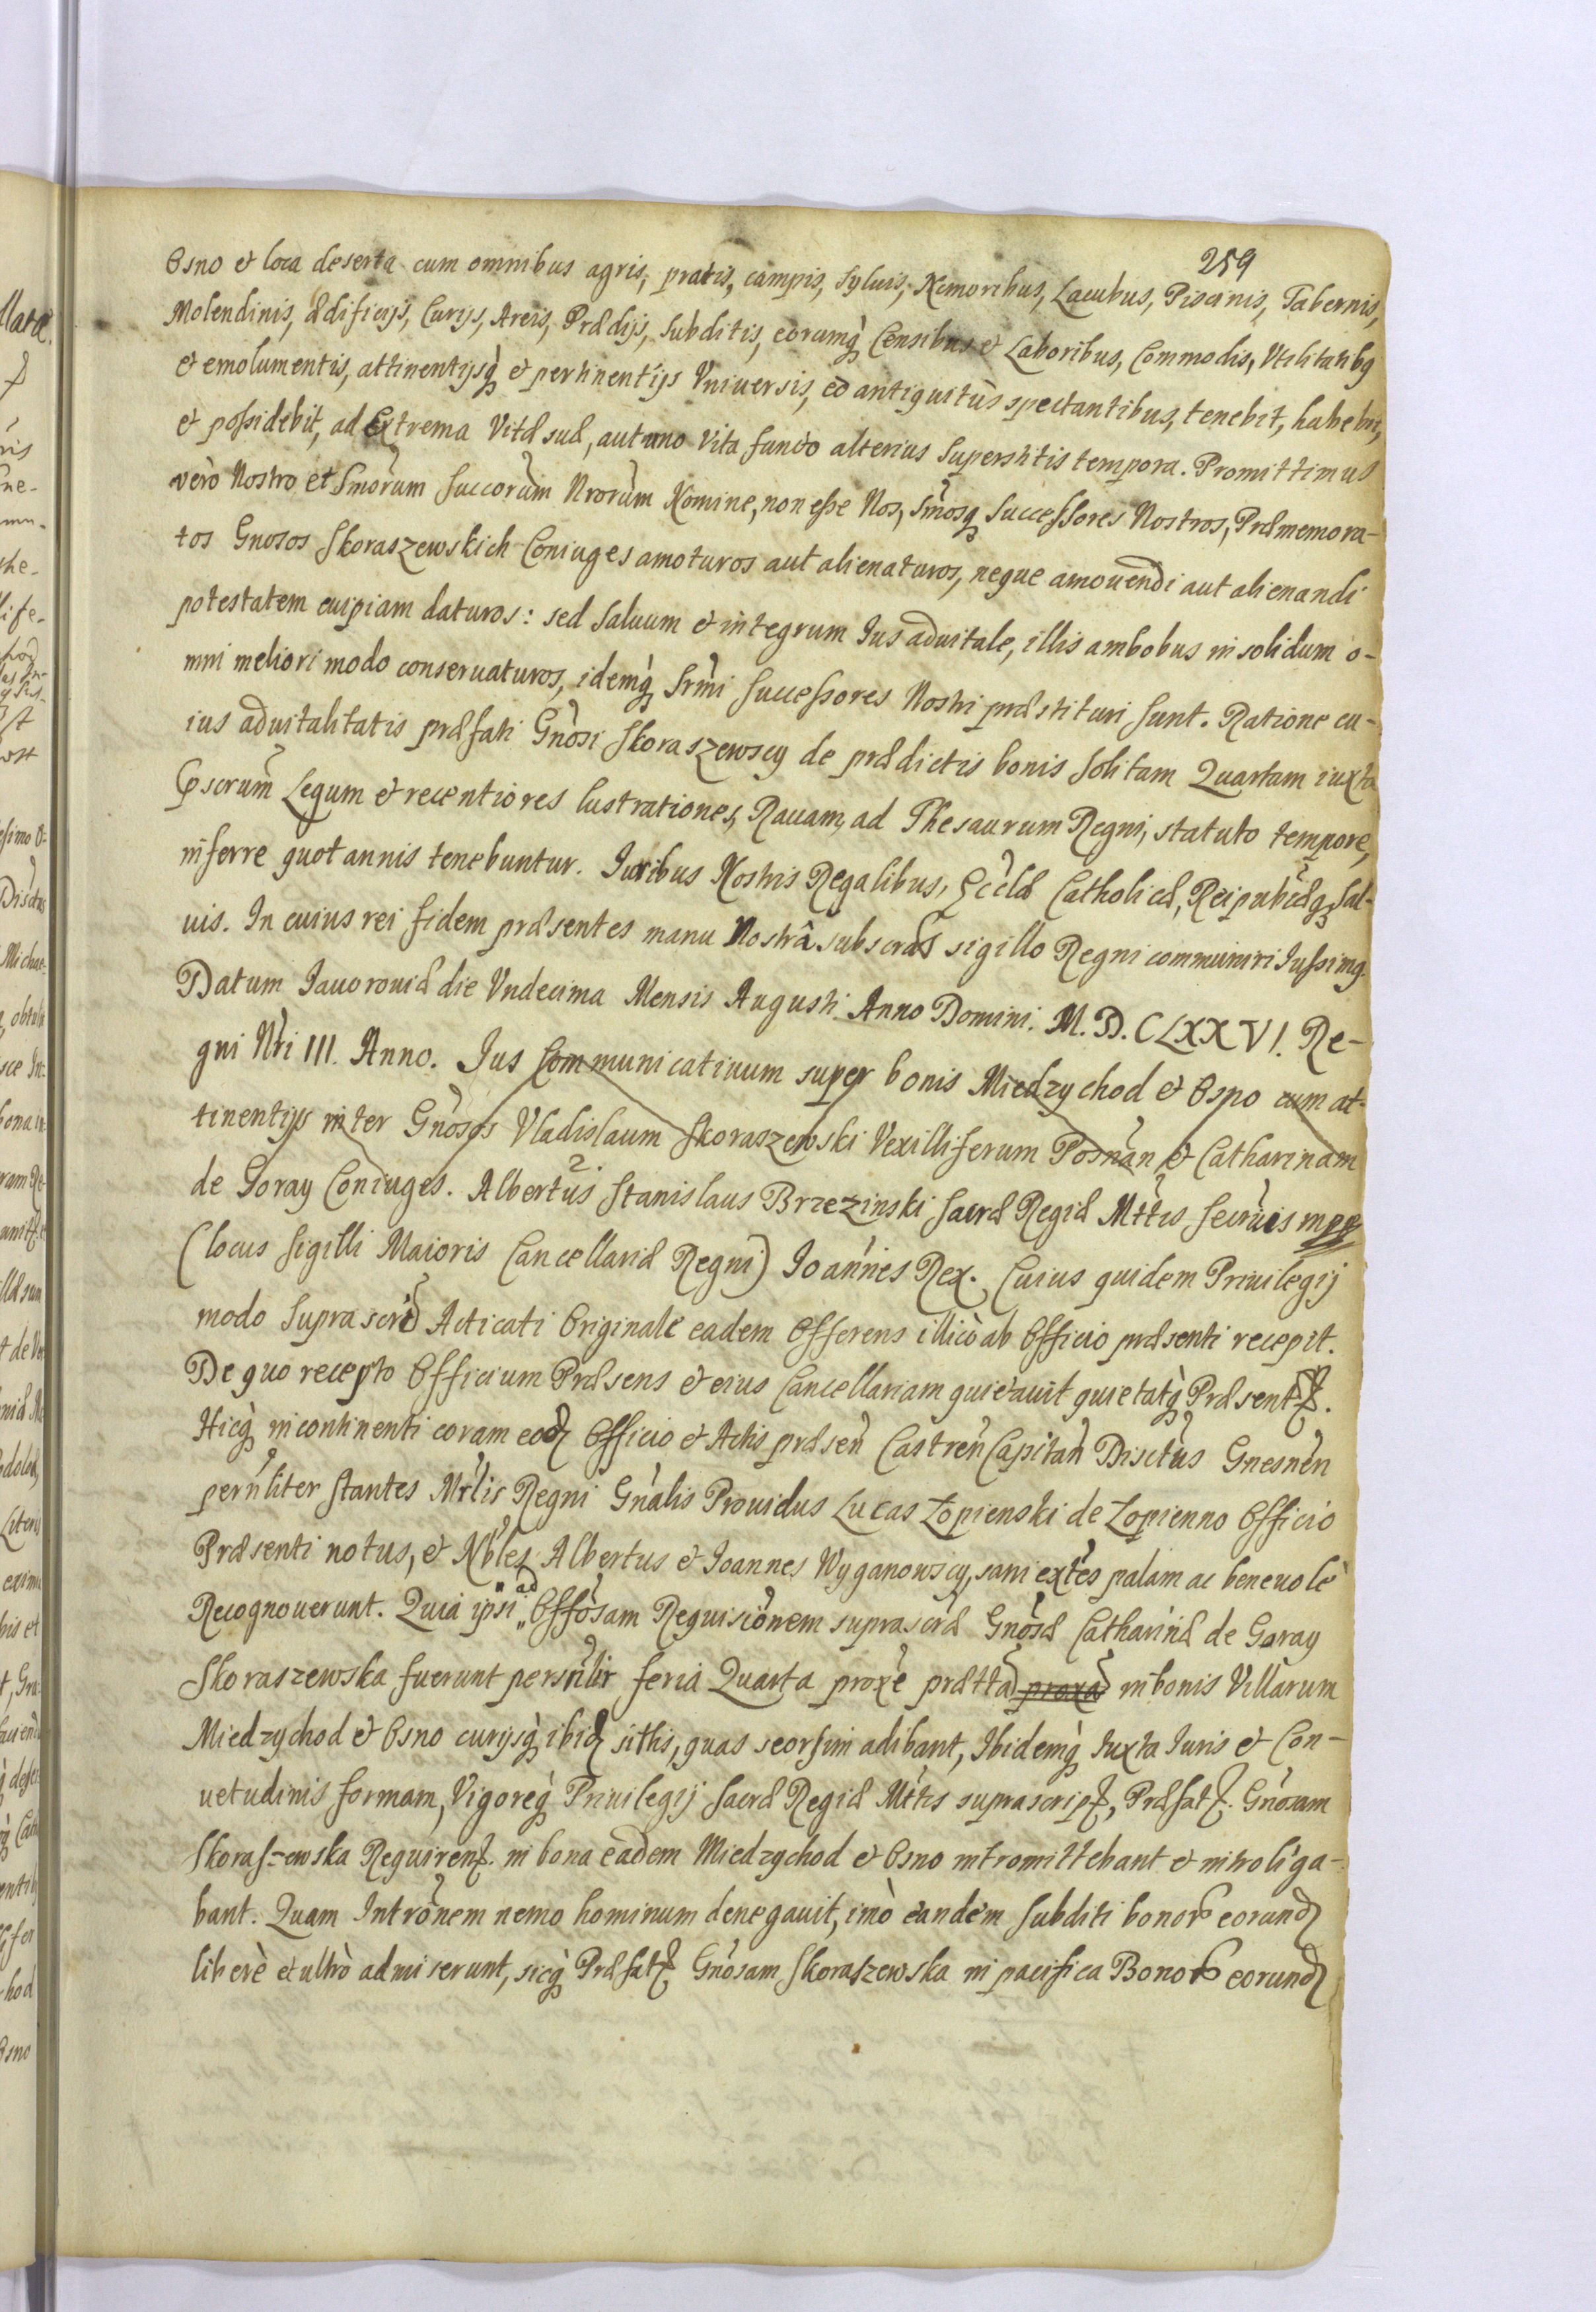 259
Osno et loca deserta cum omnibus agris, pratis, campis, syluis, Nemoribus, Lacubus, Piscinis, Tabernis,
Molendinis, ædificijs, Curijs, Areis, Prædijs, subditis, eorumq̀ Censibus et Laboribus, Commodis, Vtilitatibq
et emolumentis, attinentijsq̀ et pertinentijs Vniuersis, eò antiquitùs spectantibus, tenebit, habebit,
et possidebit, ad Extrema Vitæ suæ, aut uno Vita functo alterius superstitis tempora. Promittimus
verò Nostro et Smõrum Succorũm Nrorũm Nomine, non esse Nos, Smõsq Successores Nostros, Præmemora-
tos Gnosos Skoraszewskich Coniuges amoturos aut alienaturos, neque amouendi aut alienandi
potestatem cuipiam daturos: sed saluum et integrum Ius aduitale, illis ambobus in solidum o-
mni meliori modo conseruaturos, idemq̀ Srm̃i Successores Nostri præstituri sunt. Ratione cu-
ius aduitalitatis præfati Gnõsi Skoraszewscy de prædictis bonis solitam Quartam iuxta
Pscrum̃ Legum et recentiores lustrationes, Rauam, ad Thesaurum Regni, statuto tempore,
inferre quotannis tenebuntur. Iuribus Nostris Regalibus, Eccl̃æ Catholicæ, Reipubl̃æq sal-
uis. In cuius rei fidem præsentes manu Nostrâ subscrãs sigillo Regni communiri Iussimq.
Datum Iauorouiæ die Vndecima Mensis Augusti Anno Domini. M. D. CLXXVI. Re-
gni Nr̃i III. Anno. Ius Communicatiuum super bonis Miedzychod et Osno cum at-
tinentijs inter Gnõsos Vladislaum Skoraszewski Vexilliferum Posnãn et Catharinam
de Goray Coniuges. Albertus 2. Stanislaus Brzezinski Sacræ Regiæ Mttis Secrũis mpp
(locus sigilli Maioris Cancellariæ Regni) Ioãnnes Rex. Cuius quidem Priuilegij
modo suprascri͠ Acticati Originale eadem Offerens illicò ab Officio præsenti recepit.
De quo recepto Officium Præsens et eius Cancellariam quietauit quietatq̀ Præsent.
Hicq̀ incontinenti coram eod Officio et Actis præseñ Castreñ Capitañ Districtũs Gnesneñ
perñliter stantes Mr̃lis Regni Gnãlis Prouidus Lucas Łopienski de Łopienno Officio
Præsenti notus, et Nbles Albertus et Ioannes Wyganowscy, sani extẽs palam ac beneuolè
Recognouerunt. Quia ipsi ad Offõsam Requisiõnem suprascrã Gnõsæ Catharinæ de Goray
Skoraszewska fuerunt persñlir feria Quarta proxẽ prættã proxa in bonis Villarum
Miedzychod et Osno curijsq̀ ibid sitis, quas seorsim adibant, Ibidemq̀ Iuxta Iuris et Con-
uetudinis formam, Vigoreq̀ Priuilegij Sacræ Regiæ Mttis suprascrip, Præfat. Gnõsam
Skoraszewska Requiren. in bona eadem Miedzychod et Osno intromittebant et introliga-
bant. Quam Intrõnem nemo hominum denegauit, imò eandem Subditi bonor eorund
liberè et ultrò admiserunt, sicq̀ Præfat Gnõsam Skoraszewska in pacifica Bonor eorund